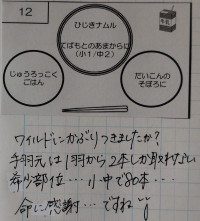 12
ひじきナムル
てばもとのあまからに
(小1/中2)
牛乳
じゅうろっこく
ごはん
だいこんの
そぼろに
ワイルドにかぶりつきましたか?
手羽元は1羽から2本しか取れない
希少部位…小中で80本…
命に感謝…ですね